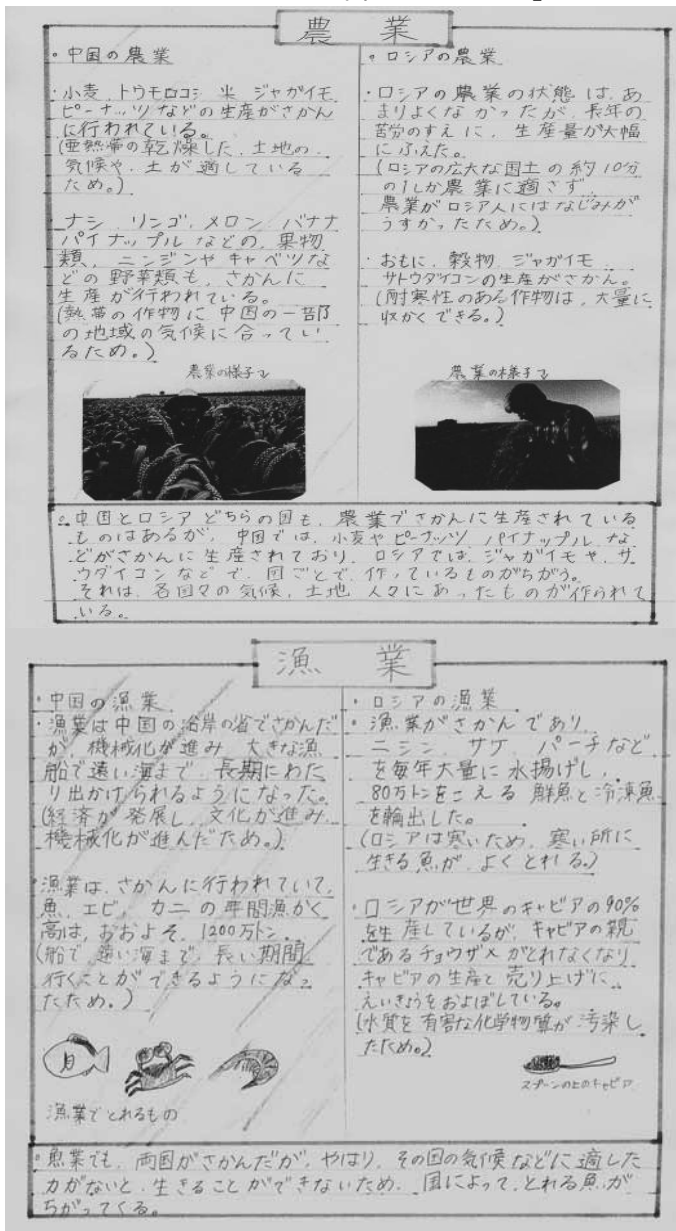 農 業
・中国の農業
・小麦 トウモロコシ 米 ジャガイモ
ピーナッツなどの生産がさかん
に行われている。
(亜熱帯の乾燥した、土地の
気候や、土が適している
ため。)
・ナシ リンゴ、メロン バナナ
パイナップルなどの、果物
類、ニンジンやキャベツな
どの野菜類も、さかんに
生産が行われている。
(熱帯の作物に中国の一部
の地域の気候に合ってい
るため。)
農業の様子
・ロシアの農業
・ロシアの農業の状態は、あ
まりよくなかったが、長年の
苦労のすえに、生産量が大幅
にふえた。
(ロシアの広大な国土の約10分
の1しか農業に適さず
農業がロシア人にはなじみが
うすかったため。)
・おもに、穀物、ジャガイモ
サトウダイコンの生産がさかん。
(耐寒性のある作物は、大量に
収かくできる。)
農業の様子
・中国とロシアどちらの国も、農業でさかんに生産されている
ものはあるが、中国では、小麦やピーナッツ パイナップル な
どがさかんに生産されており、ロシアでは、ジャガイモや、サ
ウダイコンなどで、国ごとで、作っているものがちがう。
それは、各国々の気候、土地 人々にあったものが作られて
いる。
漁 業
・中国の漁業
・漁業は中国の沿岸の省でさかんだ
が、機械化が進み 大きな漁
船で遠い海まで、長期にわた
り出かけられるようになった。
(経済が発展し、文化が進み
機械化が進んだため。)
・漁業は、さかんに行われていて、
魚、エビ、カニの年間漁かく
高は、おおよそ、1200万トン。
(船で、遠い海まで、長い期間
行くことができるようになっ
たため。)
漁業でとれるもの
・ロシアの漁業
・漁業がさかんであり
ニシン、サケ パーチなど
を毎年大量に水揚げし、
80万トンをこえる鮮魚と冷凍魚
を輸出した。
(ロシアは寒いため、寒い所に
生きる魚が、よくとれる。)
・ロシアが世界のキャビアの90%
を生産しているが、キャビアの親
であるチョウザメがとれなくなり
キャビアの生産と売り上げに
えいきょうをおよぼしている。
(水質を有害な化学物質が汚染し
たため。)
スプーンの上のキャビア
・魚業でも、両国がさかんだが、やはり、その国の気候などに適した
力がないと、生きることができないため、国によって、とれる魚が
ちがってくる。